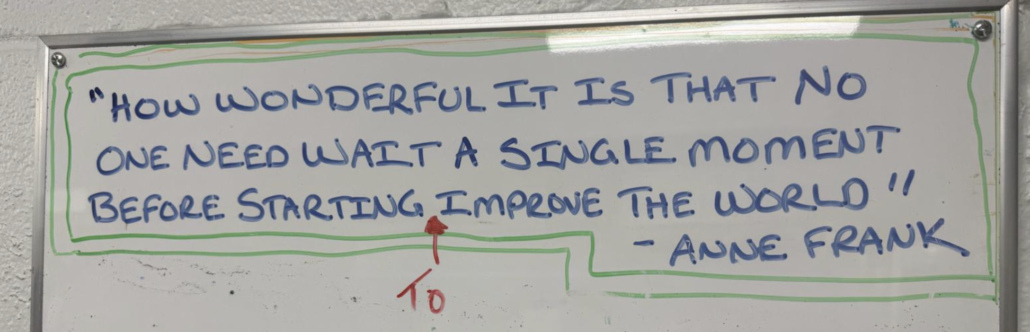 "HOW WONDERFUL IT IS THAT NO
ONE NEED WAIT A SINGLE MOMENT
BEFORE STARTING IMPROVE THE WORLD"
- ANNE FRANK
TO